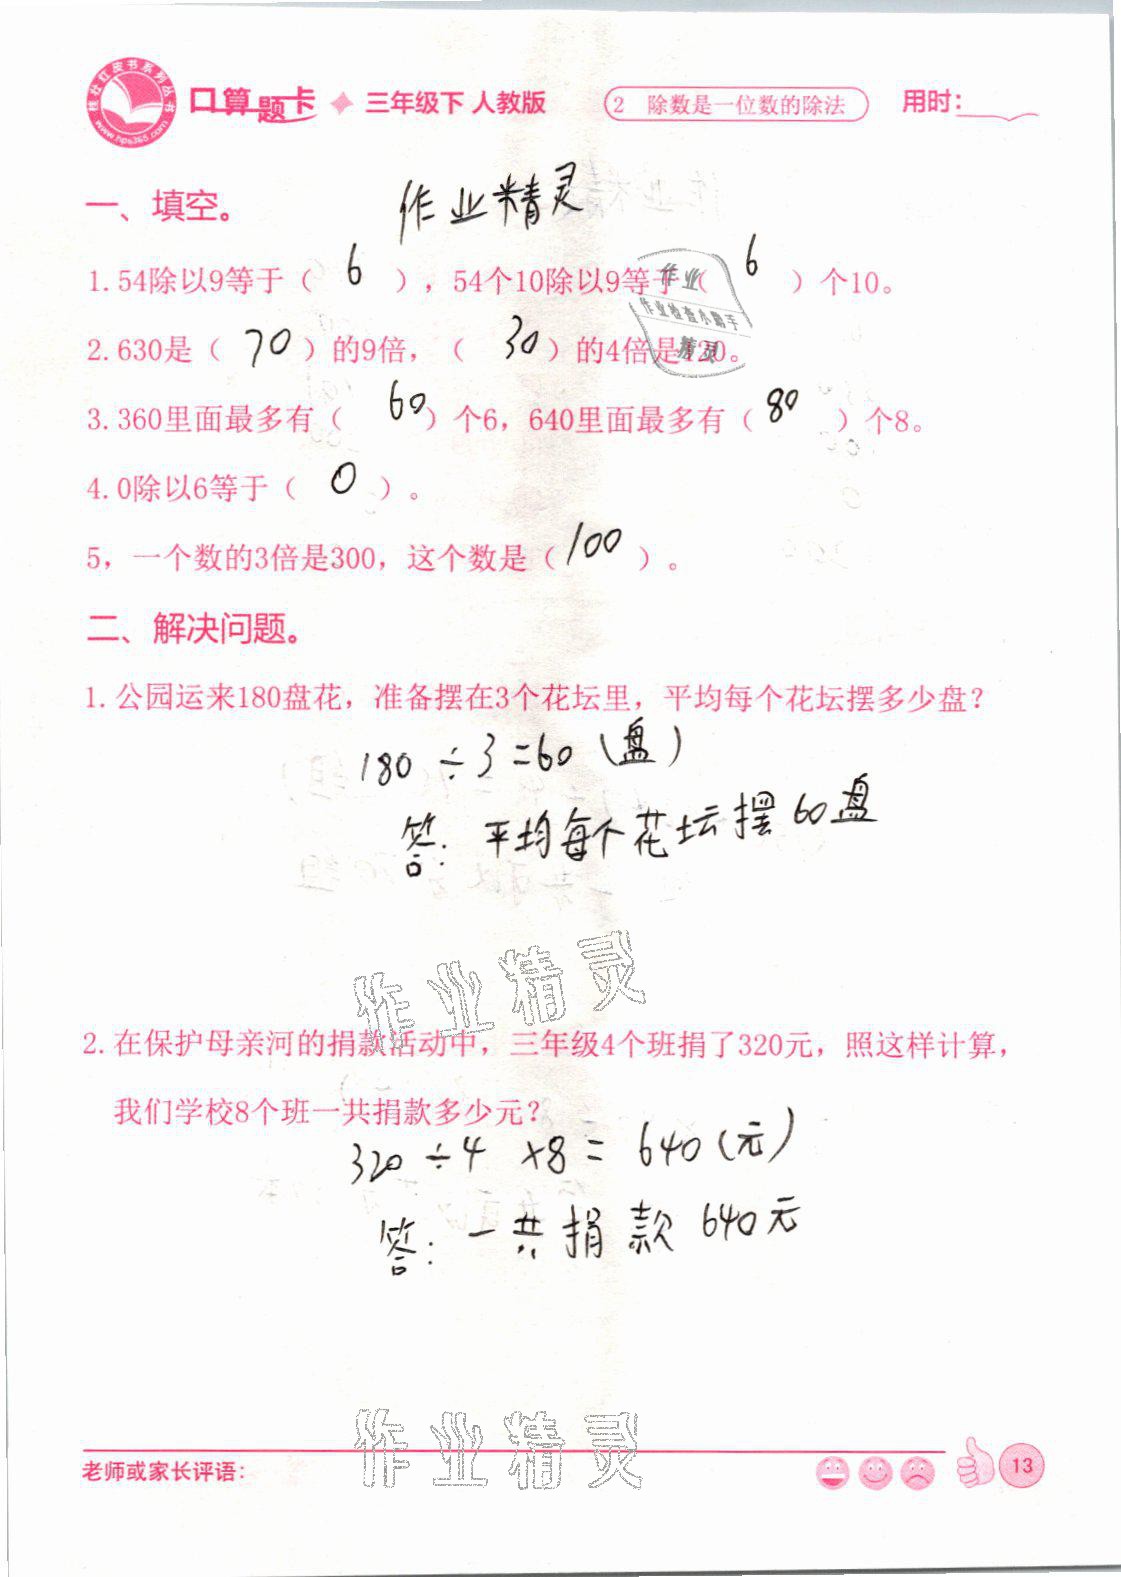 桂壮红皮书系列丛书
www.hps365.com
口算题卡 三年级下 人教版 2 除数是一位数的除法 用时：
一、填空。 作业精灵
1.54除以9等于（ 6 ），54个10除以9等于（ 6 ）个10。
作业
作业检查小助手
精灵
2.630是（ 70 ）的9倍，（ 30 ）的4倍是120。
3.360里面最多有（ 60 ）个6，640里面最多有（ 80 ）个8。
4.0除以6等于（ 0 ）。
5，一个数的3倍是300，这个数是（ 100 ）。
二、解决问题。
1.公园运来180盘花，准备摆在3个花坛里，平均每个花坛摆多少盘？
180÷3=60（盘）
答：平均每个花坛摆60盘
作业精灵
2.在保护母亲河的捐款活动中，三年级4个班捐了320元，照这样计算，
我们学校8个班一共捐款多少元？
320÷4×8=640（元）
答：一共捐款640元
作业精灵
老师或家长评语： 13